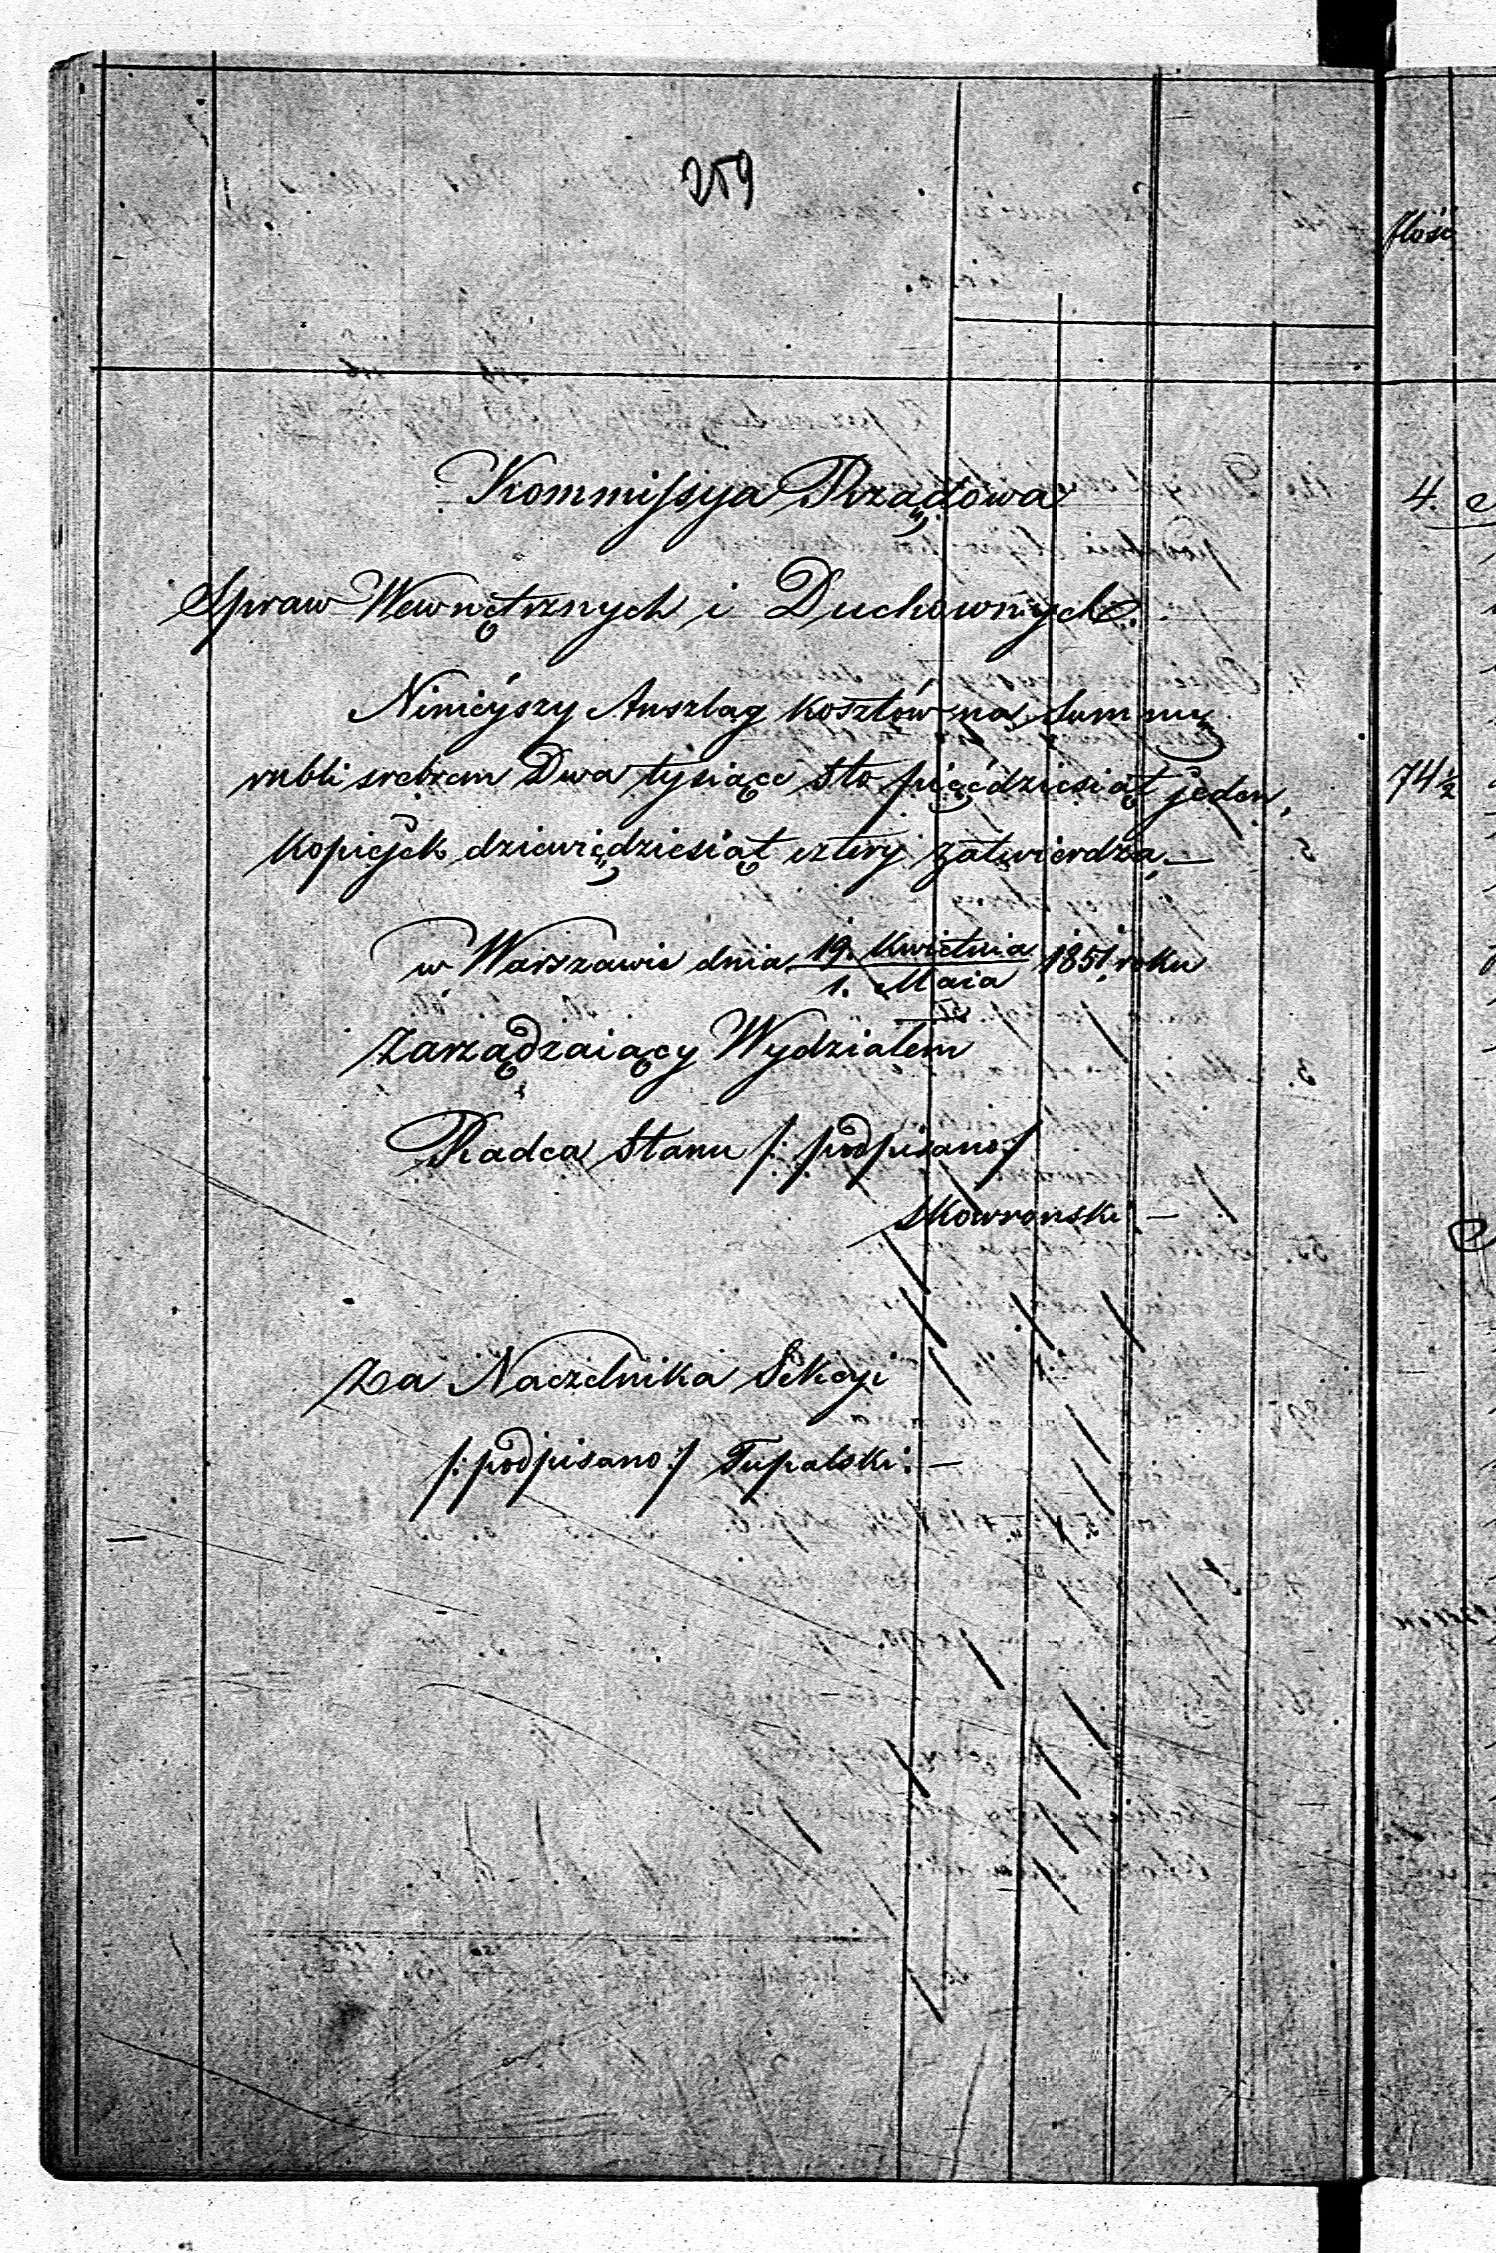 259
Kommissya Rządowa
Spraw Wewnętrznych i Duchownych.
Ninieyszy Anszlag kosztów na Summę
rubli srebrem Dwa tysiące Sto pięćdziesiąt jeden,
kopieyek dziewięćdziesiąt cztery zatwierdza.—
w Warszawie dnia 19. Kwietnia / 1. Maia 1851 roku
Zarządzaiący Wydziałem
Radca Stanu /: podpisano :/
Skowroński.—
Za Naczelnika Sekcyi
/: podpisano :/ Tupalski.—
Ilość
4.
74 1/2